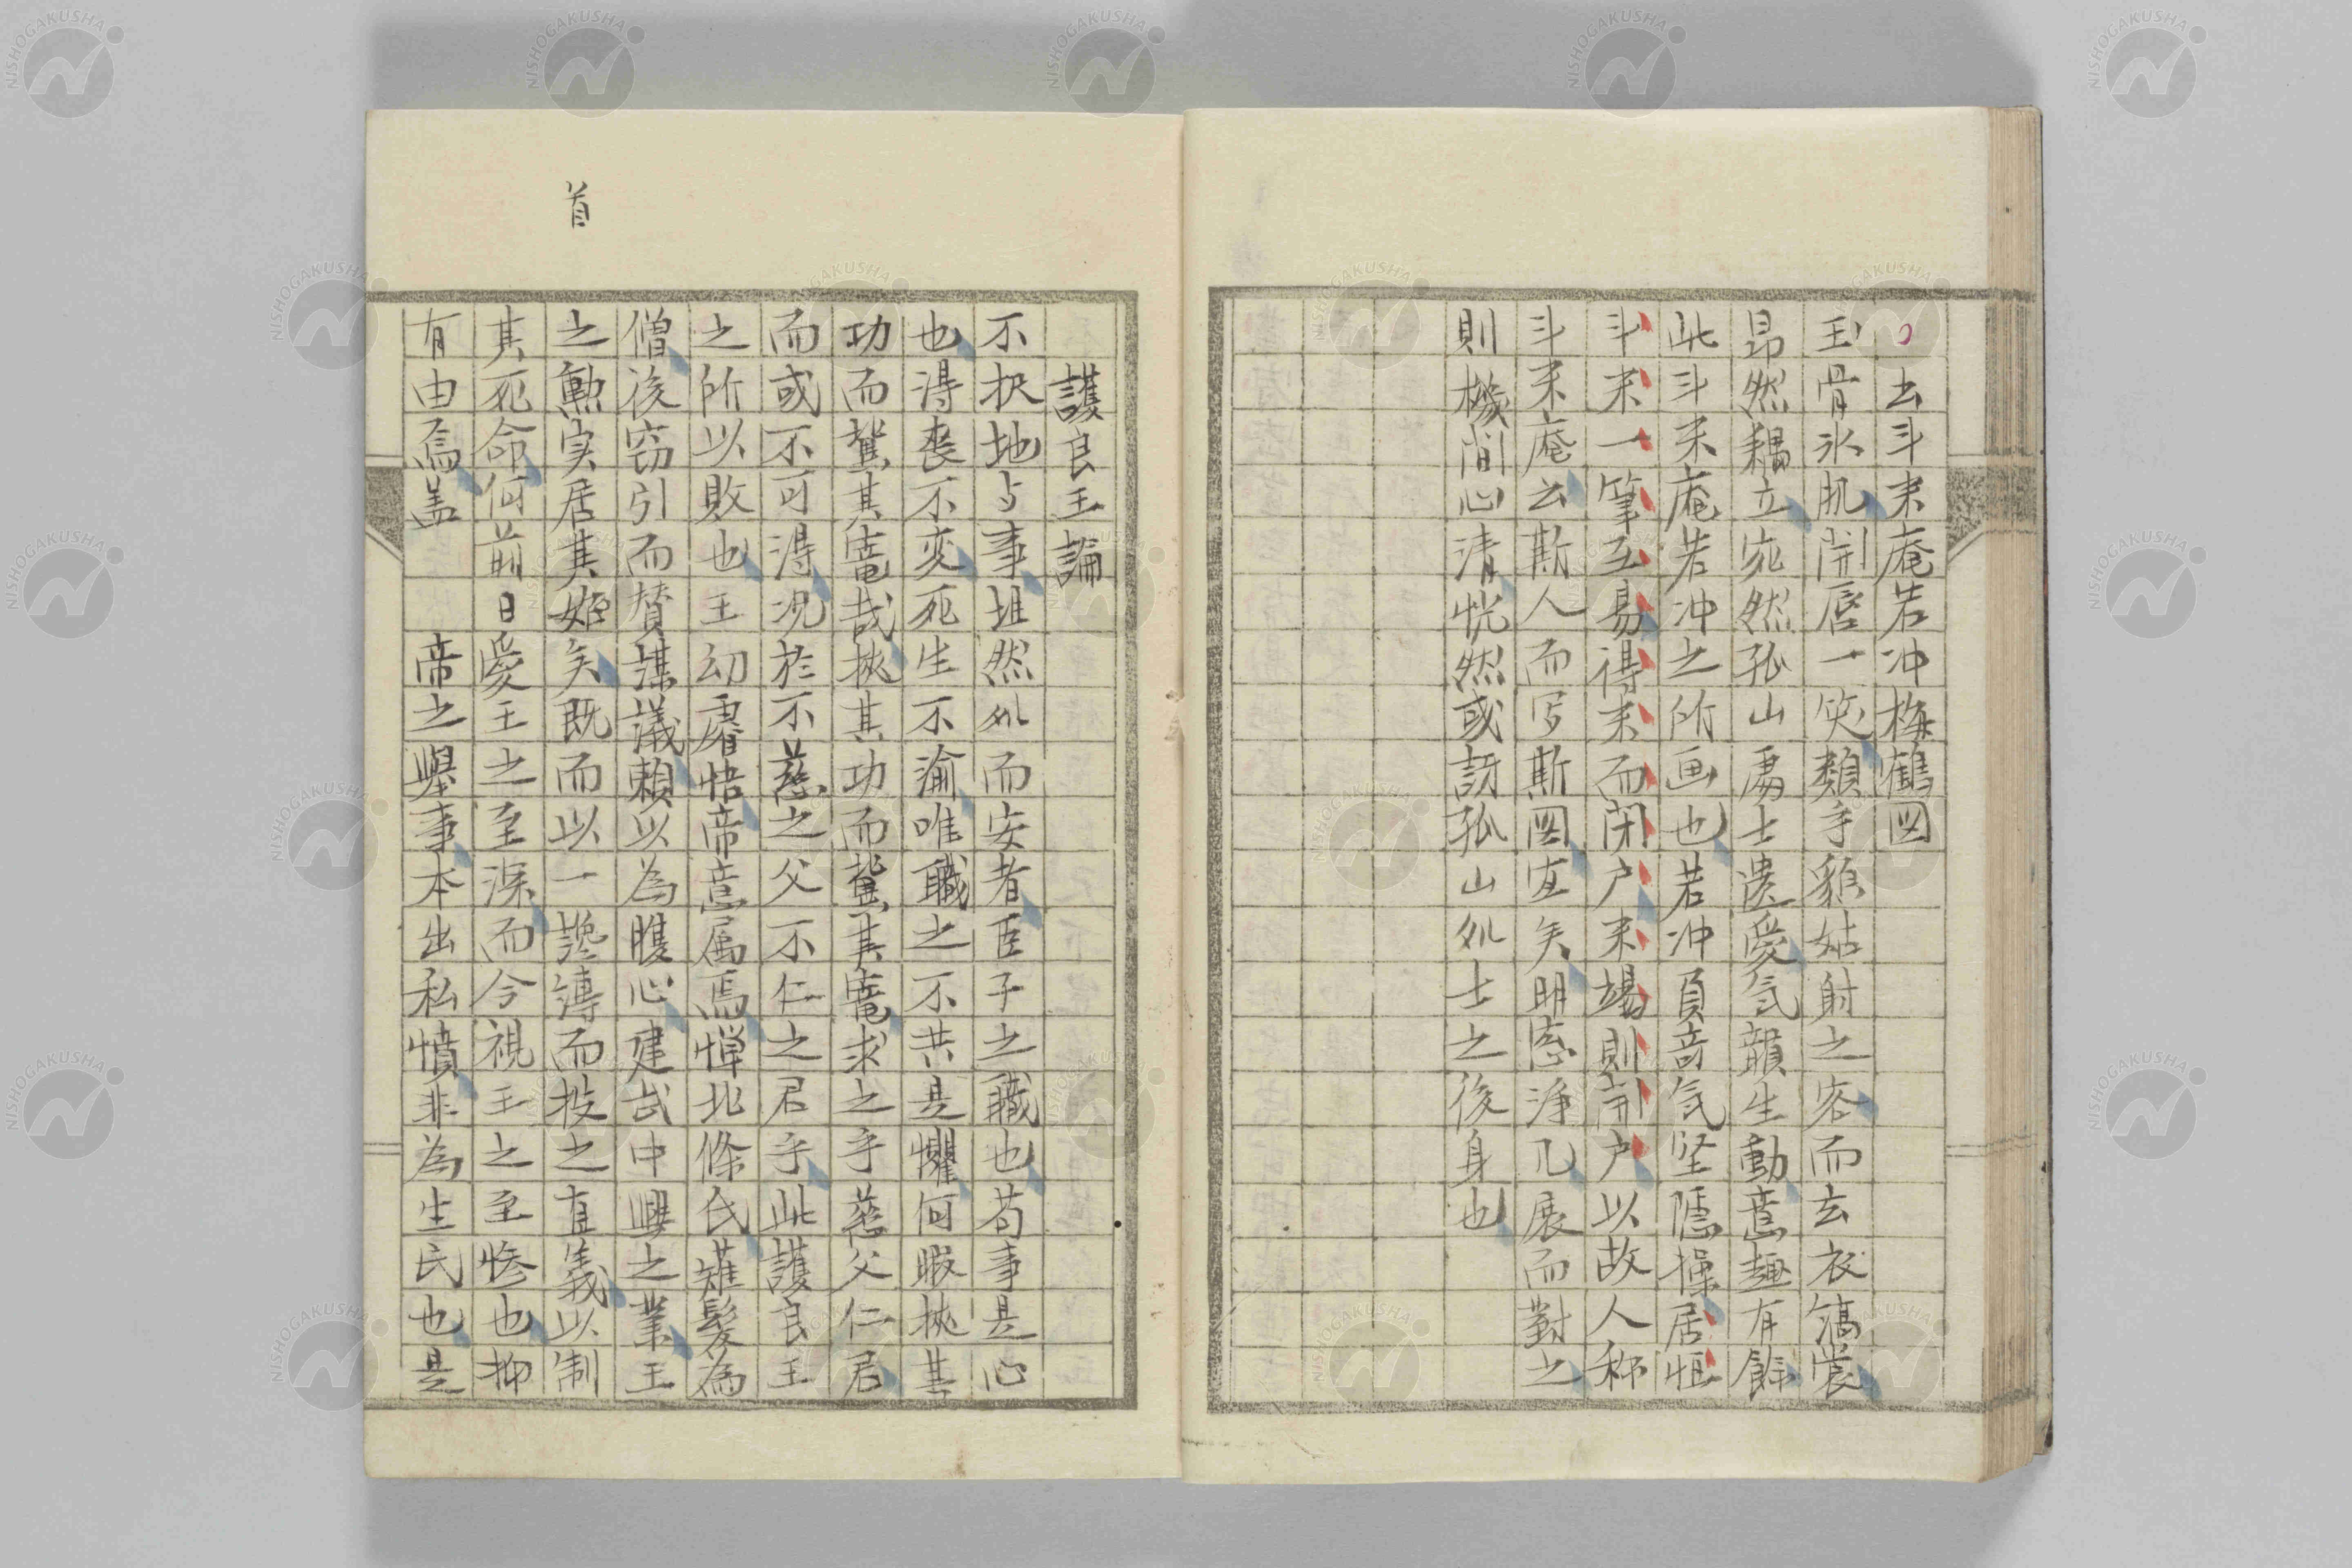 去斗米庵若冲梅鶴図
玉骨氷肌開唇一笑類乎貌姑射之容而玄衣縞裳
昂然耦立宛然孤山処士遺愛気韻生動意趣有餘
此斗米庵若冲之所画也若冲負奇気坚隠操居恒
斗米一筆互易得米而閉戸米竭則開戸以故人称
斗米庵云斯人而写斯図宜矣明窓浄几展而對之
則機間心清恍然或訝孤山処士之後身也
護良王論
不択地与事坦然処而安者臣子之職也苟事是心
也得喪不変死生不渝唯職之不共是懼何暇挟其
功而驁其寵哉挟其功而驁其寵求之乎慈父仁君
而或不可得况於不慈之父不仁之君乎此護良王
之所以敗也王幼睿悟帝意属焉憚北條氏薙髪為
僧後窃引而賛謀議頼以為腹心建武中興之業王
之勲実居其始矣既而以一讒譖而投之直義以制
其死命何前日愛王之至深而今視王之至惨也抑
有由焉盖 帝之擧事本出私憤非為生民也是
首
NISHOGAKUSHA